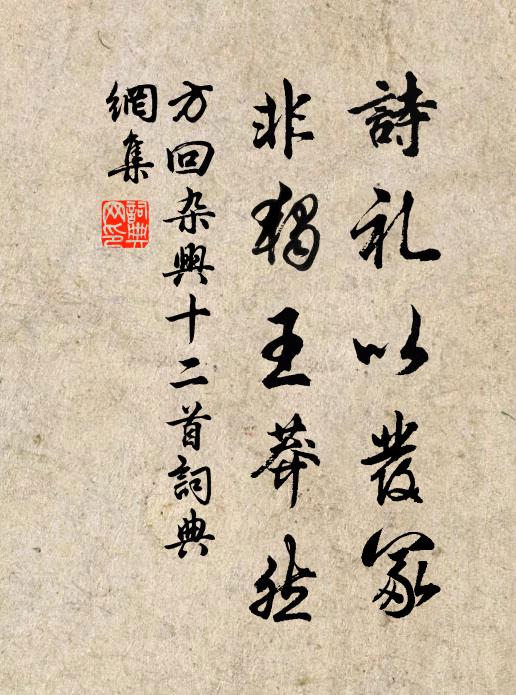 詩礼以發冢
非獨王莽然
方回杂興十二首詞典
網集
詞典網印